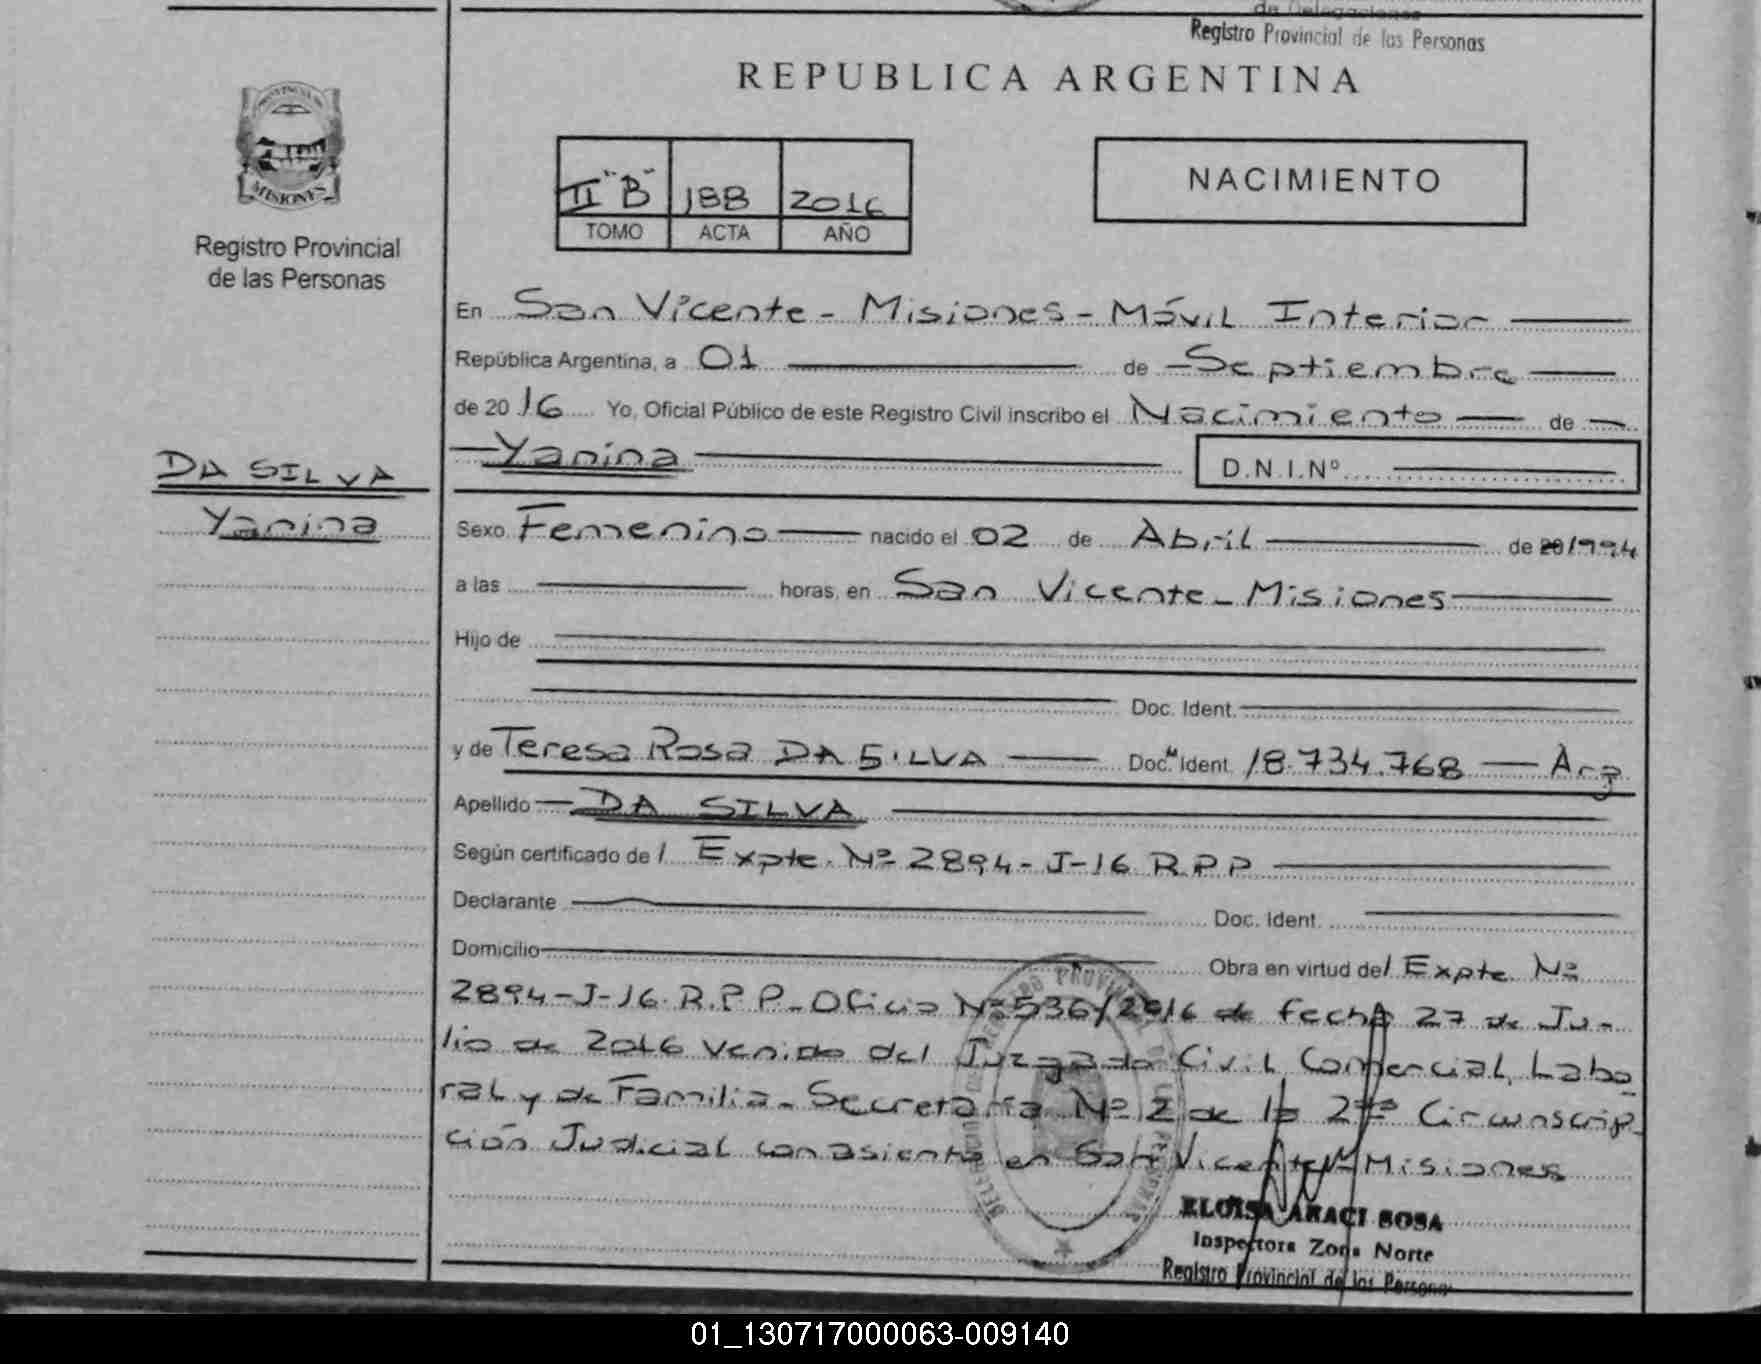 Registro Provincial de las Personas
REPUBLICA ARGENTINA
PROVINCIA DE
MISIONES
Registro Provincial
de las Personas
NACIMIENTO
II "B" 188 2016
TOMO ACTA AÑO
En San Vicente - Misiones - Móvil Interior
República Argentina, a 01 de Septiembre
de 2016 Yo, Oficial Público de este Registro Civil inscribo el Nacimiento de
Yanina D.N.I.Nº
DA SILVA
Yanina
Sexo Femenino nacido el 02 de Abril de 20 1994
a las horas, en San Vicente - Misiones
Hijo de
Doc. Ident.
y de Teresa Rosa DA SILVA Doc. Ident. M 18.734.768 Arg
Apellido DA SILVA
Según certificado de / Expte. Nº 2894-J-16 R.P.P
Declarante Doc. Ident.
Domicilio Obra en virtud de / Expte. Nº
2894-J-16. R.P.P - Oficio Nº 536/2016 de fecha 27 de Ju-
lio de 2016 venido del Juzgado Civil, Comercial, Labo
ral y de Familia - Secretaría Nº 2 de la 2da Circunscrip-
ción Judicial con asiento en San Vicente - Misiones
ELOISA ARACI SOSA
Inspectora Zona Norte
Registro Provincial de las Personas
01_130717000063-009140